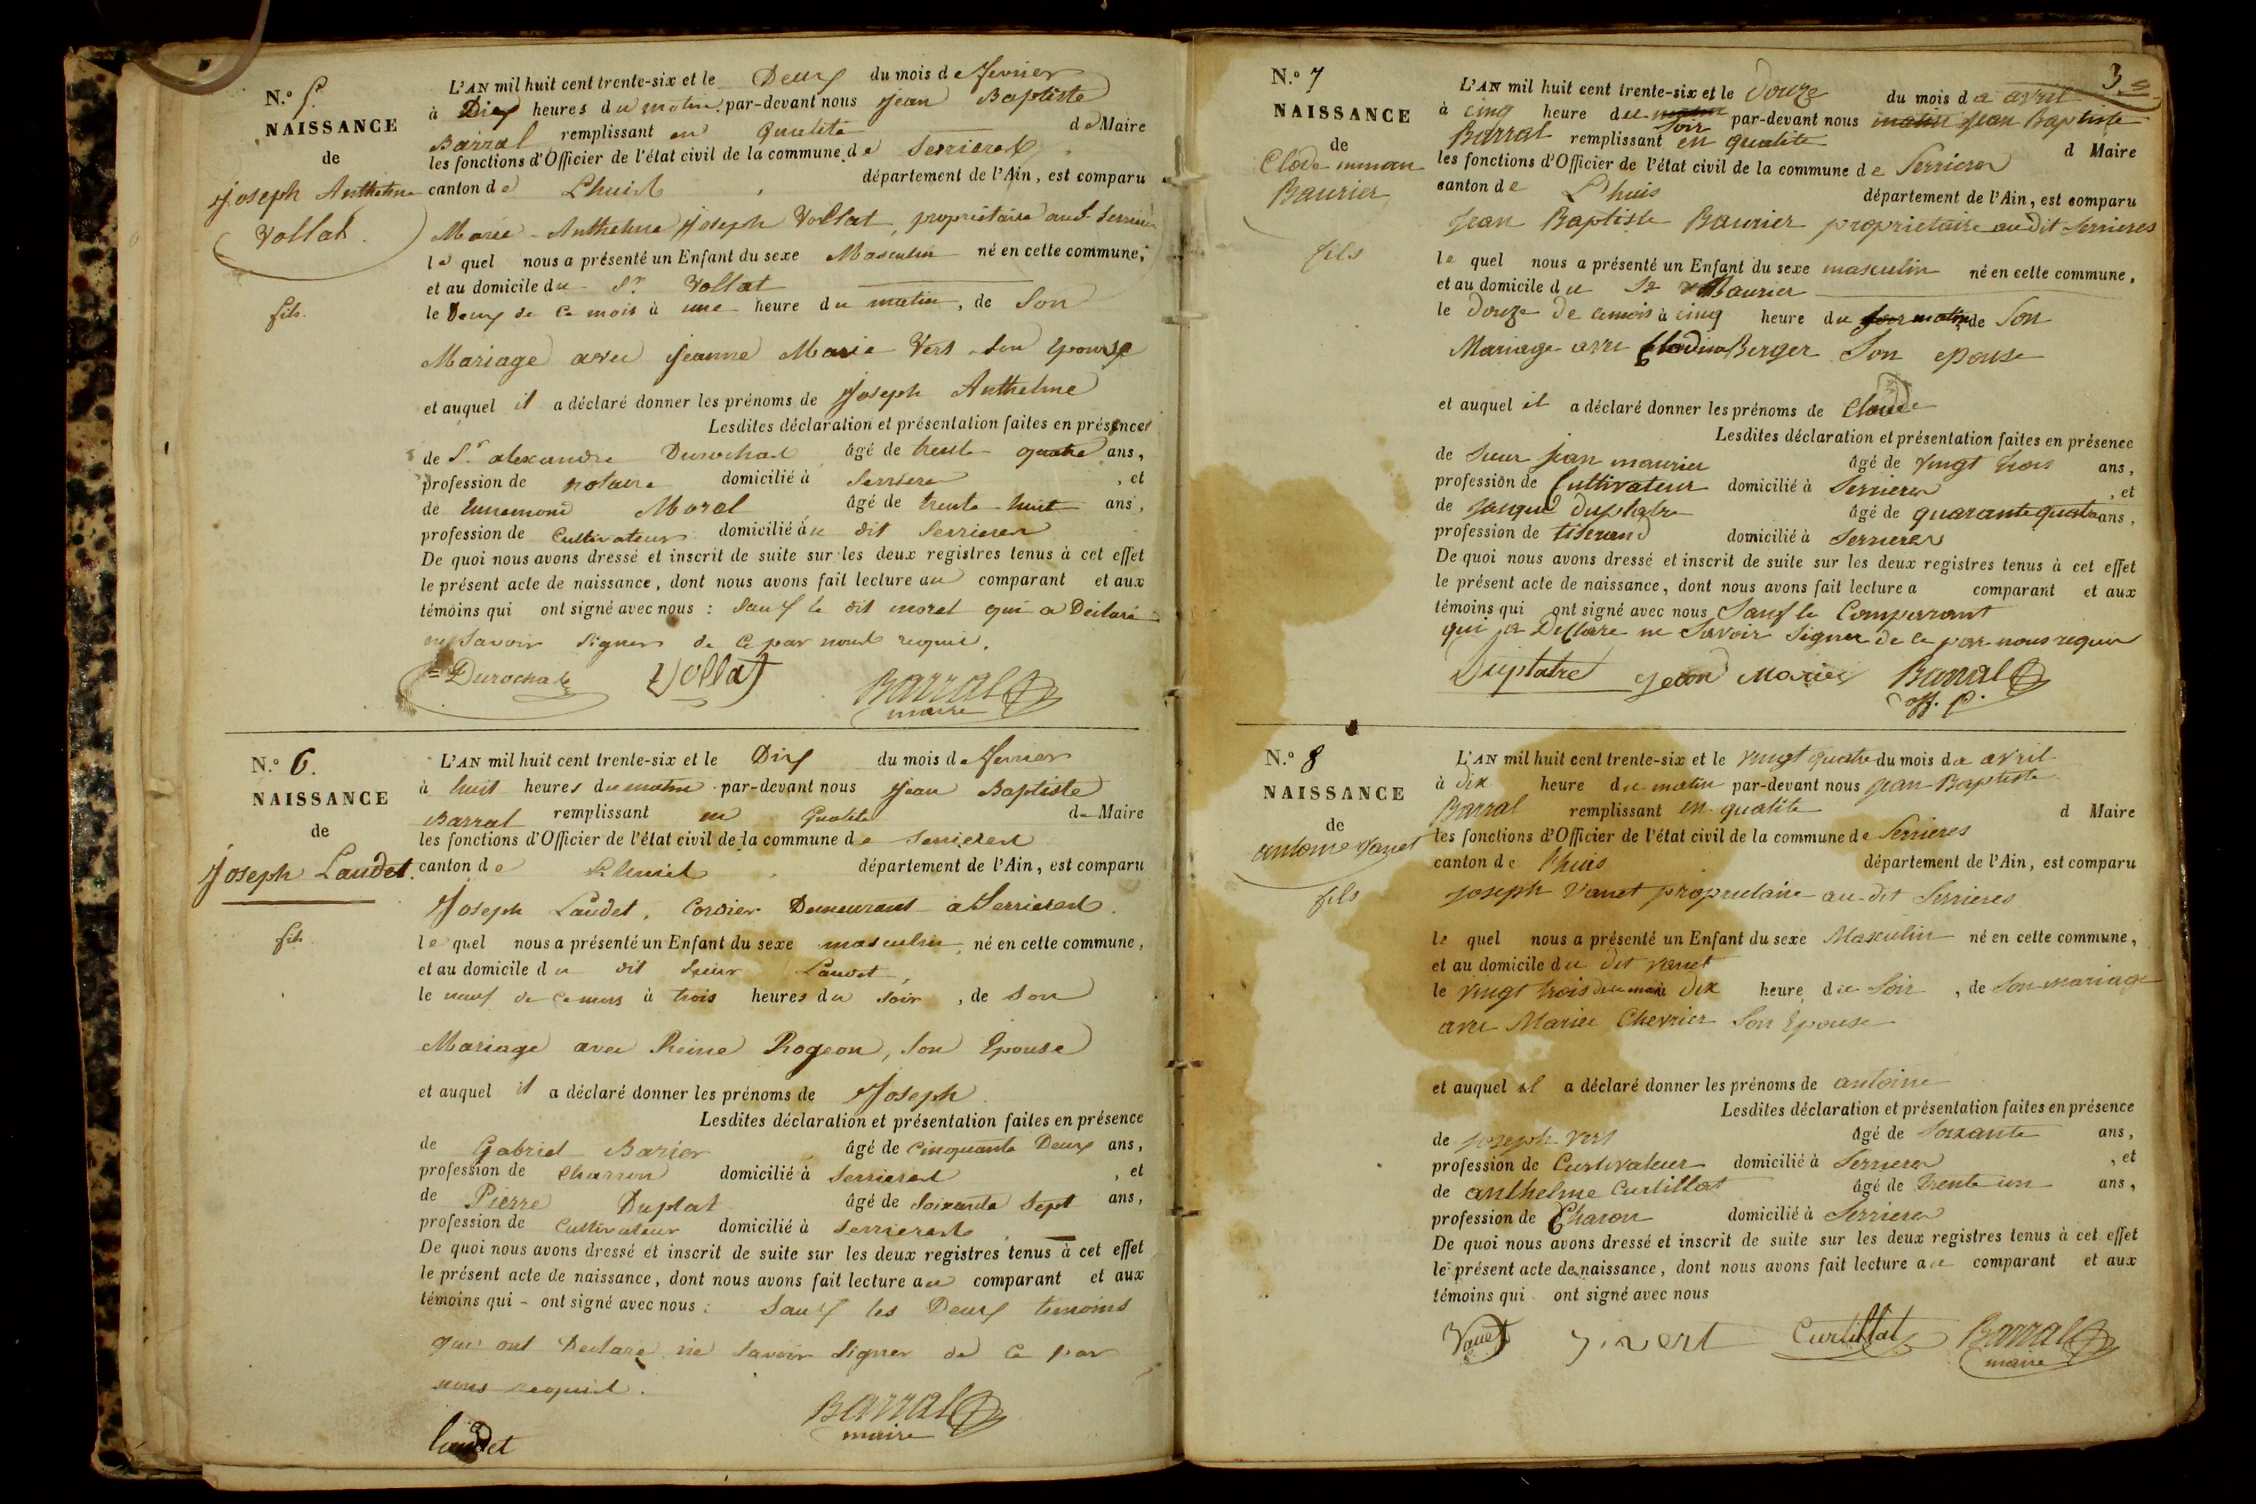 N.° 5.
NAISSANCE
de
Joseph Anthelme
Vollat.
fils.
L'AN mil huit cent trente-six et le Deux du mois de fevrier
à Dix heures du matin par-devant nous Jean Baptiste
Barral remplissant en Qualité de Maire
les fonctions d'Officier de l'état civil de la commune de Serrieres
canton de Lhuis, département de l'Ain, est comparu
Marie-Anthelme Joseph Vollat, propriétaire audt Serrieres
le quel nous a présenté un Enfant du sexe Masculin né en cette commune,
et au domicile du Sr Vollat
le Deux de ce mois à une heure du matin, de Son
Mariage avec Jeanne Marie Vert son Epouse
et auquel il a déclaré donner les prénoms de Joseph Anthelme
Lesdites déclaration et présentation faites en présences
de Sr. alexandre Durochat âgé de trente-quatre ans,
profession de notaire domicilié à Serriere, et
de Ennemond Morel âgé de trente-huit ans,
profession de Cultivateur domicilié au dit Serrieres
De quoi nous avons dressé et inscrit de suite sur les deux registres tenus à cet effet
le présent acte de naissance, dont nous avons fait lecture au comparant et aux
témoins qui ont signé avec nous : Sauf le dit morel qui a Déclaré
ne Savoir Signer de ce par nous requis.
Durochat Vollat Barral
maire
N.° 6.
NAISSANCE
de
Joseph Laudet.
fils
L'AN mil huit cent trente-six et le Dix du mois de fevrier
à huit heures du matin par-devant nous Jean Baptiste
Barral remplissant en Qualité de Maire
les fonctions d'Officier de l'état civil de la commune de Serrieres
canton de Lhuis, département de l'Ain, est comparu
Joseph Laudet, Cordier Demeurant à Serrieres.
le quel nous a présenté un Enfant du sexe masculin, né en cette commune,
et au domicile du dit Sieur Laudet,
le neuf de ce mois à trois heures du Soir, de Son
Mariage avec Reine Rogeon, Son Epouse
et auquel il a déclaré donner les prénoms de Joseph.
Lesdites déclaration et présentation faites en présence
de Gabriel Barier âgé de Cinquante Deux ans,
profession de Charron domicilié à Serrieres, et
de Pierre Duplat âgé de Soixante Sept ans,
profession de Cultivateur domicilié à Serrieres
De quoi nous avons dressé et inscrit de suite sur les deux registres tenus à cet effet
le présent acte de naissance, dont nous avons fait lecture au comparant et aux
témoins qui - ont signé avec nous : Sauf les Deux temoins
qui ont Declaré ne Savoir Signer de ce par
nous requis.
Barral
maire
laudet
3
N.° 7
NAISSANCE
de
Clode
Baurier
fils
L'AN mil huit cent trente-six et le Douze du mois de avril
à cinq heure du Soir par-devant nous Jean Baptiste
Barral remplissant en qualité d Maire
les fonctions d'Officier de l'état civil de la commune de Serrieres
canton de L'huis département de l'Ain, est comparu
Jean Baptiste Baurier propriétaire au dit Serrieres
le quel nous a présenté un Enfant du sexe masculin né en cette commune,
et au domicile du Sr Baurier
le Douze De cemois à cinq heure du matin de Son
Mariage avec Clodina Berger Son epouse
et auquel il a déclaré donner les prénoms de Claude
Lesdites déclaration et présentation faites en présence
de Sieur jean maurier âgé de vingt trois ans,
profession de Cultivateur domicilié à Serrieres, et
de Jaque Duplatre âgé de quarante quatre ans,
profession de tiserand domicilié à Serrieres
De quoi nous avons dressé et inscrit de suite sur les deux registres tenus à cet effet
le présent acte de naissance, dont nous avons fait lecture a comparant et aux
témoins qui ont signé avec nous Sauf le Comparant
qui a Déclare ne Savoir Signer de ce par nous requis
Duplatre jean Barral
off. p.
N.° 8
NAISSANCE
de
antoine vanet
fils
L'AN mil huit cent trente-six et le vingt quatre du mois de avril
à dix heure du matin par-devant nous Jean Baptiste
Barral remplissant en qualité d Maire
les fonctions d'Officier de l'état civil de la commune de Serrieres
canton de lhuis département de l'Ain, est comparu
Joseph vanet propriétaire au-dit Serrieres
le quel nous a présenté un Enfant du sexe Masculin né en cette commune,
et au domicile du dit vanet
le vingt trois du mois dix heure du Soir, de Son mariage
avec Mariee Chevrier Son Epouse
et auquel il a déclaré donner les prénoms de antoine
Lesdites déclaration et présentation faites en présence
de joseph vert âgé de Soixante ans,
profession de Curtivateur domicilié à Serrieres, et
de anthelme Curtillat âgé de trente un ans,
profession de Charon domicilié à Serrieres
De quoi nous avons dressé et inscrit de suite sur les deux registres tenus à cet effet
le présent acte de naissance, dont nous avons fait lecture au comparant et aux
témoins qui ont signé avec nous
Vanet j. vert Curtillat Barral
maire